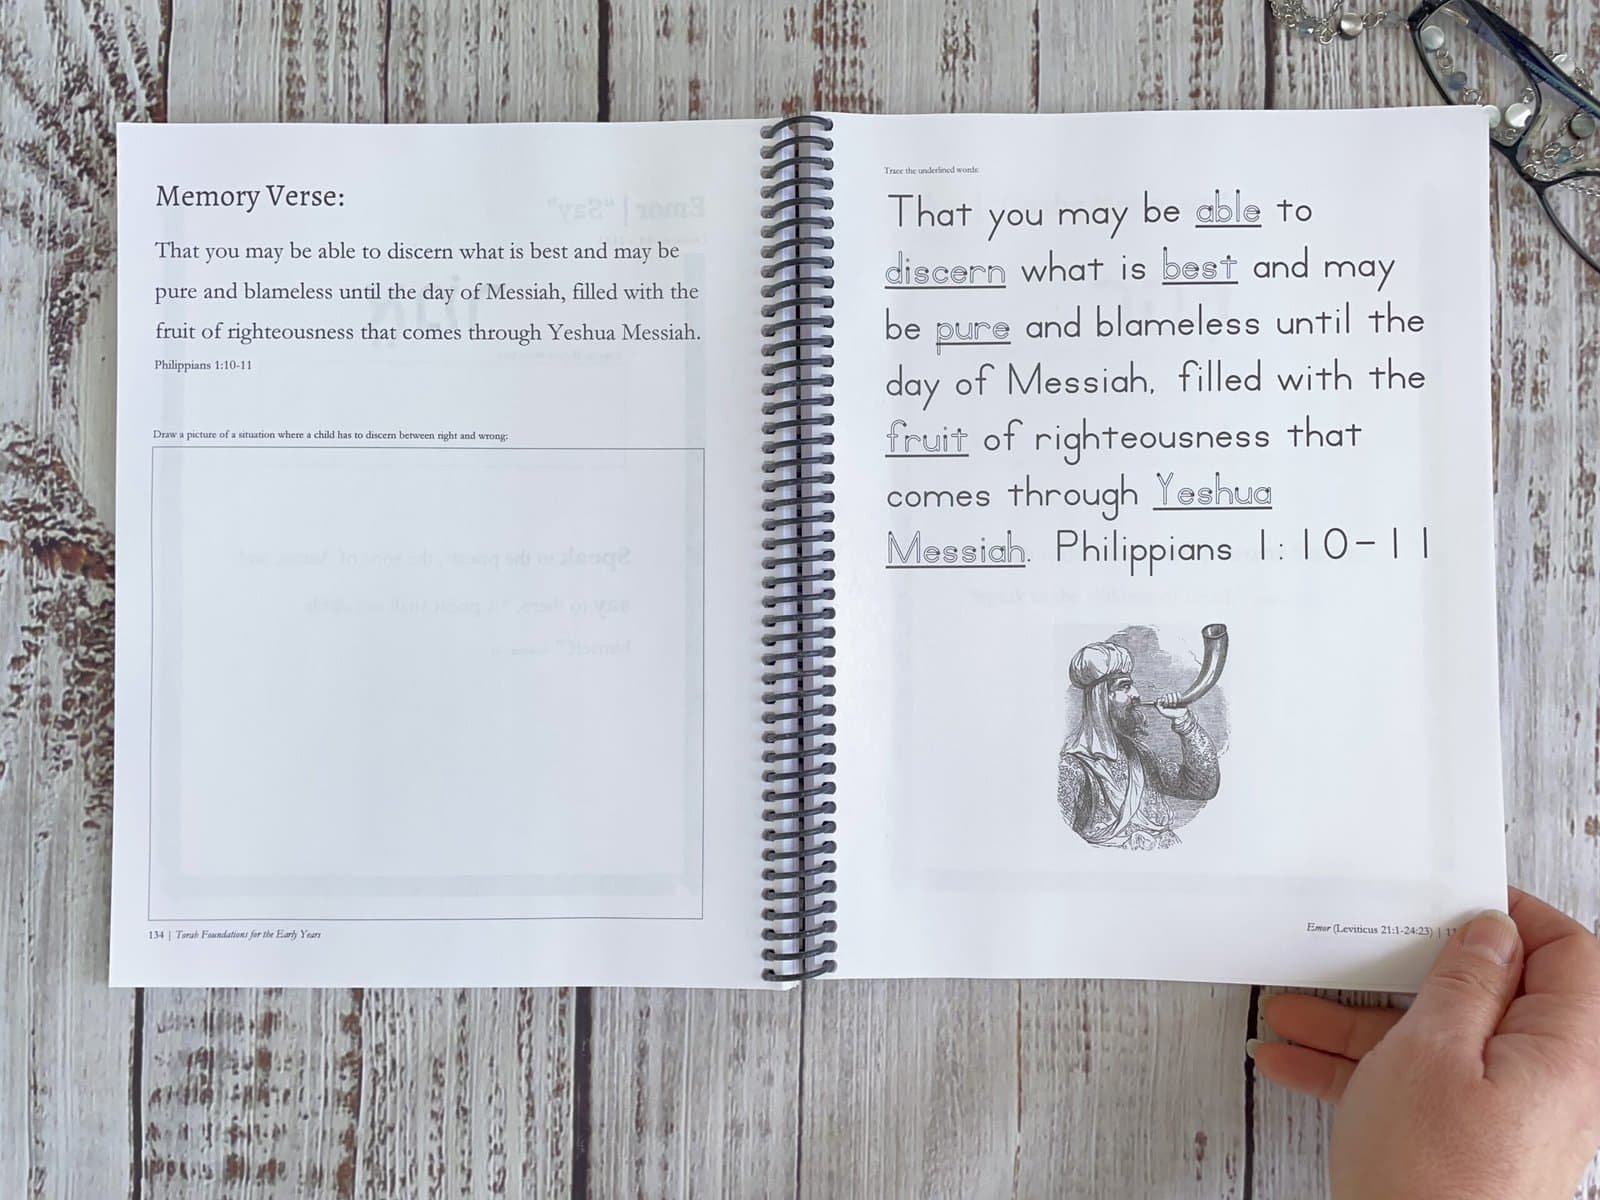 Memory Verse:
That you may be able to discern what is best and may be
pure and blameless until the day of Messiah, filled with the
fruit of righteousness that comes through Yeshua Messiah.
Philippians 1:10-11
Draw a picture of a situation where a child has to discern between right and wrong:
134 | Torah Foundations for the Early Years
Trace the underlined words:
That you may be able to
discern what is best and may
be pure and blameless until the
day of Messiah, filled with the
fruit of righteousness that
comes through Yeshua
Messiah. Philippians 1:10-11
Emor (Leviticus 21:1-24:23) |